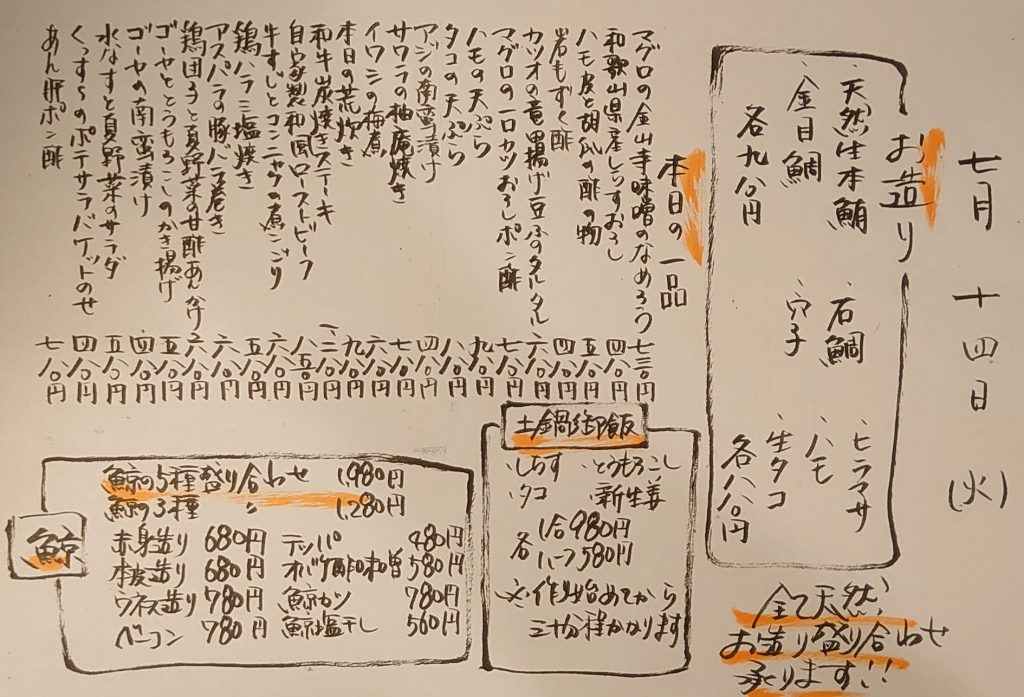 七月十四日(火)
お造り
・天然生本鮪 ・石鯛 ・ヒラマサ
・金目鯛 ・穴子 ・ハモ
・生タコ
各九八〇円
各八八〇円
全て天然!
お造り盛り合わせ
承ります!!
本日の一品
マグロの金山寺味噌のなめろう 七三〇円
和歌山県産しらすおろし 四八〇円
ハモ皮と胡瓜の酢の物 五八〇円
岩もずく酢 四八〇円
カツオの竜田揚げ豆ふのタルタル 六八〇円
マグロの一口カツおろしポン酢 七八〇円
ハモの天ぷら 九八〇円
タコの天ぷら 八八〇円
アジの南蛮漬け 四八〇円
サワラの柚庵焼き 七八〇円
イワシの梅煮 六八〇円
本日の荒炊き 九八〇円
和牛炭焼きステーキ 一二八〇円
自家製和風ローストビーフ 八五〇円
牛すじとコンニャクの煮こごり 六八〇円
鶏ハラミ塩焼き 五八〇円
アスパラの豚バラ巻き 六八〇円
鶏団子と夏野菜の甘酢あんかけ 六八〇円
ゴーヤととうもろこしのかき揚げ 五八〇円
ゴーヤの南蛮漬け 四八〇円
水なすと夏野菜のサラダ 五八〇円
ポテサラバケットのせ 四八〇円
あん肝ポン酢 七八〇円
土鍋御飯
・しらす ・とうもろこし
・タコ ・新生姜
各 1合980円
ハーフ580円
※作り始めてから
三十分程かかります
鯨
鯨の5種盛り合わせ 1,980円
鯨の3種 〃 1,280円
赤身造り 680円 テッパ 480円
本皮造り 680円 オバケ酢味噌 580円
ウネス造り 780円 鯨カツ 780円
ベーコン 780円 鯨塩干し 560円